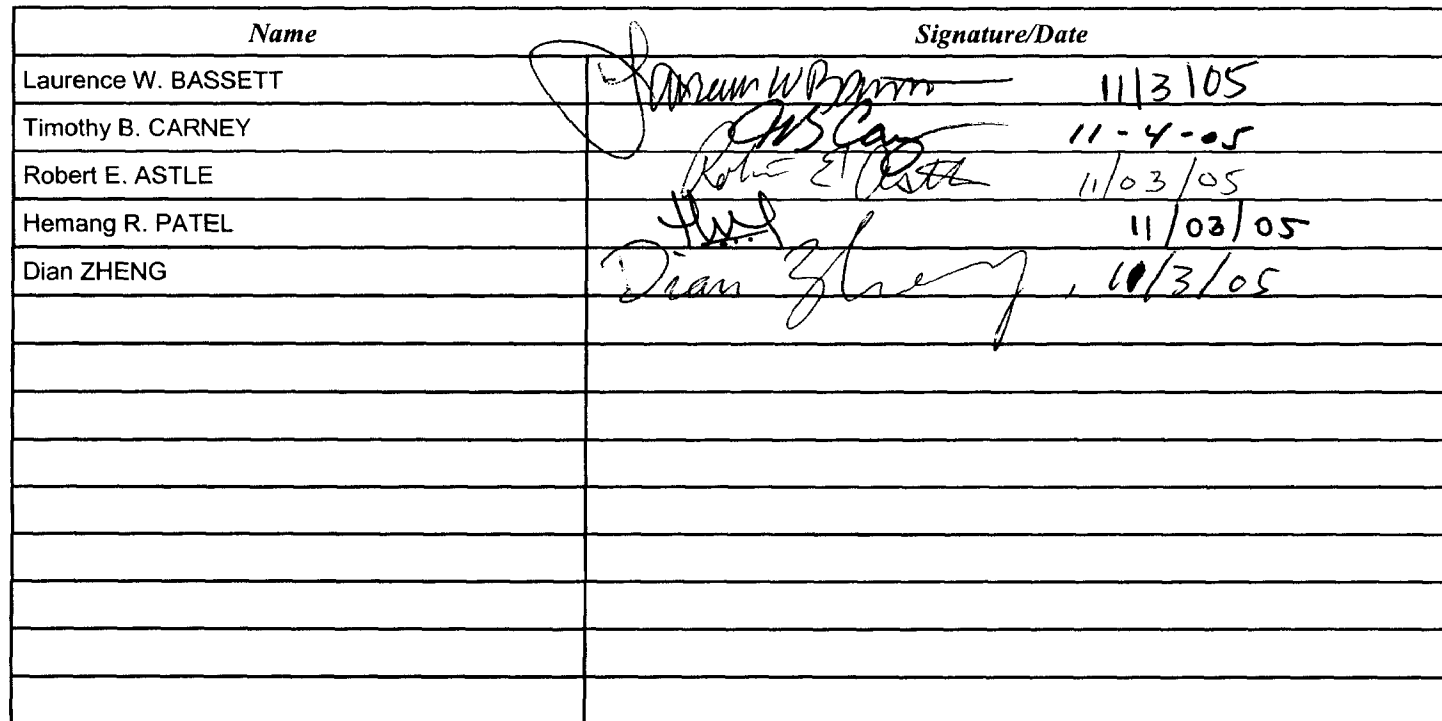 Name Signature/Date
Laurence W. BASSETT 11/3/05
Timothy B. CARNEY 11-4-05
Robert E. ASTLE Robert E Astle 11/03/05
Hemang R. PATEL 11/03/05
Dian ZHENG Dian Zheng, 11/3/05